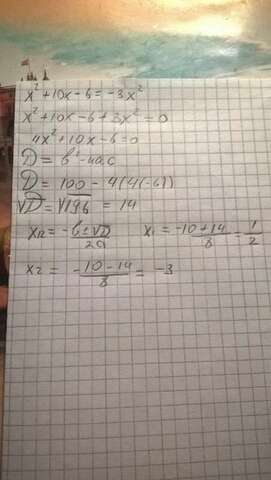 x² + 10x - 6 = -3x²
x² + 10x - 6 + 3x² = 0
4x² + 10x - 6 = 0
D = b² - 4ac
D = 100 - 4(4(-6))
√D = √196 = 14
x₁₂ = -b ± √D / 2a    x₁ = -10 + 14 / 8 = 1/2
x₂ = -10 - 14 / 8 = -3